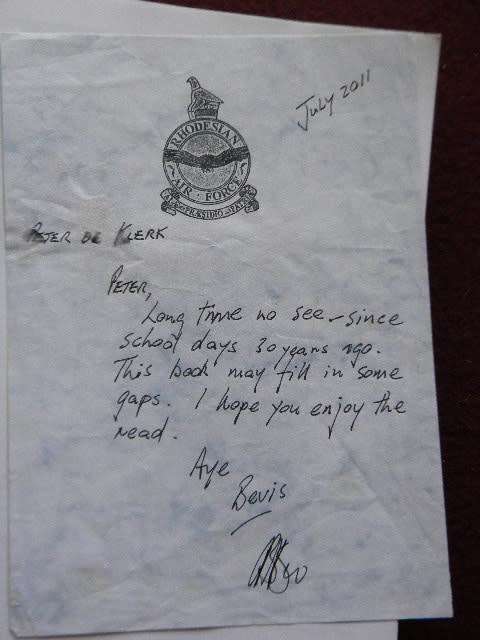 July 2011
RHODESIAN
AIR FORCE
ALAE PRAESIDIO PATRIAE
PETER DE KLERK
PETER,
Long time no see - since
school days 30 years ago.
This book may fill in some
gaps. I hope you enjoy the
read.
Aye
Bevis